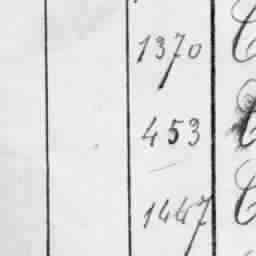 1370
453
1447